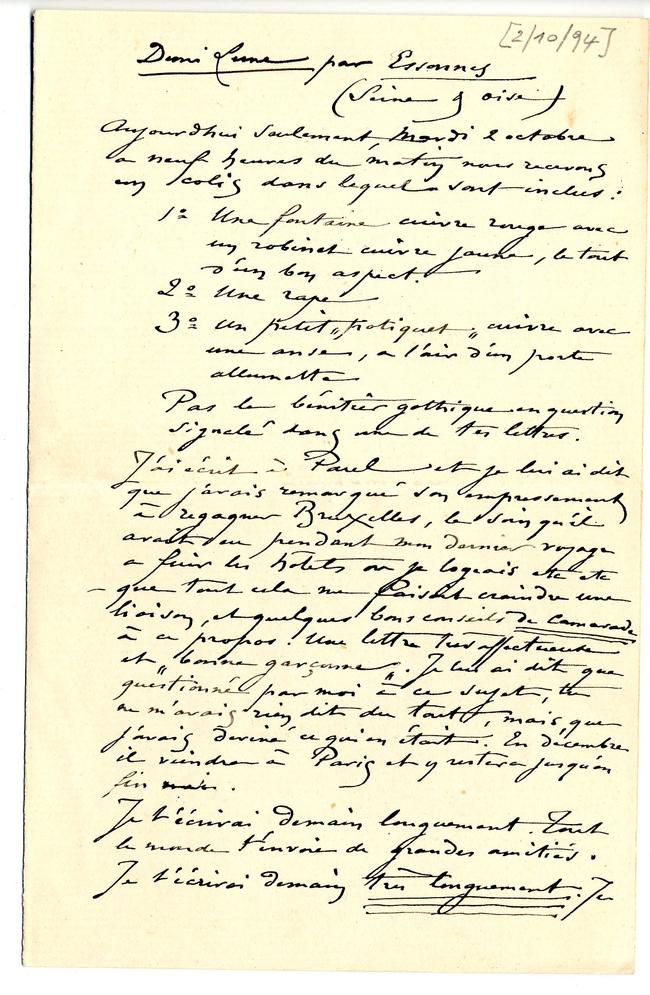 [2/10/94]
Demi Lune par Essonnes
(Seine & oise)
Aujourdhui seulement Mardi 2 octobre
a neuf heures du matin nous recevons
un colis dans lequel sont inclus :
1º Une fontaine cuivre rouge avec
un robinet cuivre jaune, le tout
d'un bon aspect.
2º Une rape
3º un petit "potiquet" cuivre avec
une anse, a l'air d'un porte
allumette
Pas le bénitier gothique en question
signalé dans une de tes lettres.
J'ai écrit à Paul et je lui ai dit
que j'avais remarqué son empressement
à regagner Bruxelles, le soin qu'il
avait eu pendant mon dernier voyage
a fuir les hôtels ou je logeais etc etc
– que tout cela me faisait craindre une
liaison, et quelques bons conseils de camarade
à ce propos. Une lettre très affectueuse
et "bonne garçonne". Je lui ai dit que
questionnée par moi à ce sujet, tu
ne m'avais rien dit du tout, mais que
j'avais deviné ce qui en était. En décembre
il viendra à Paris et y restera jusqu'en
fin mai.
Je t'écrirai demain longuement. Tout
le monde t'envoie de grandes amitiés.
Je t'écrirai demain très longuement. Je